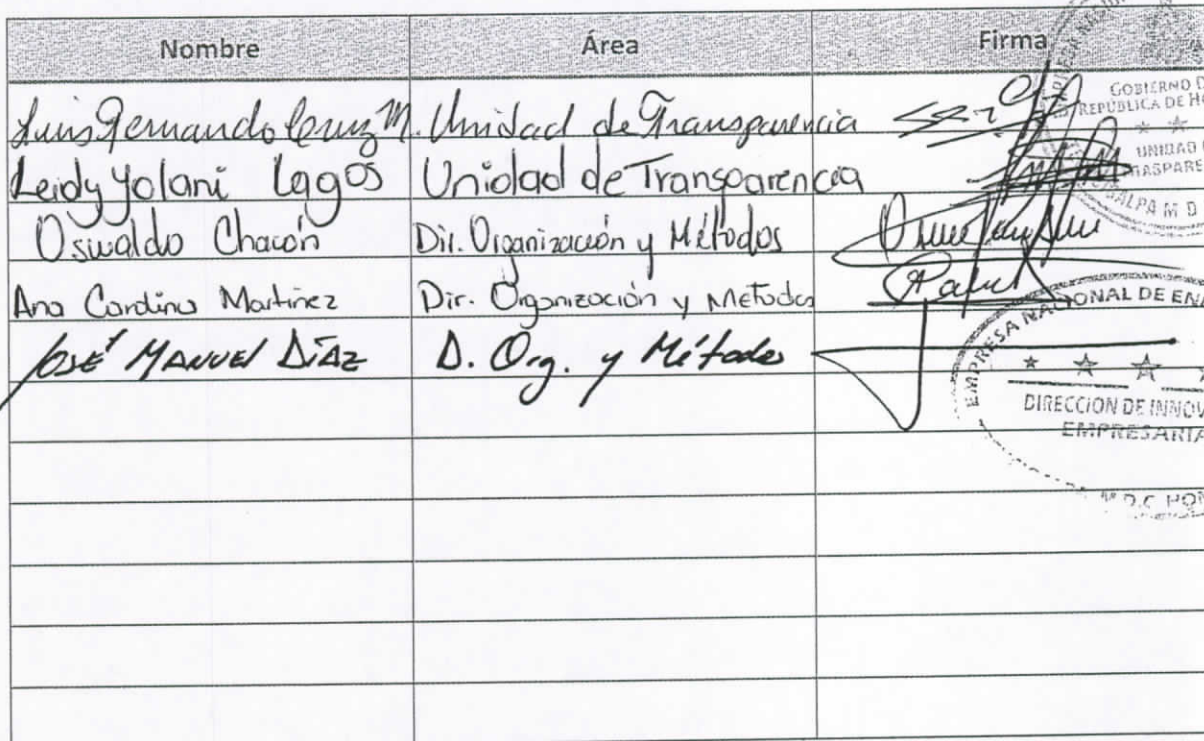 Nombre Área Firma
Luis Fernando Cruz M. Unidad de Transparencia
Leidy Yolani Lagos Unidad de Transparencia
Oswaldo Chacón Dir. Organización y Métodos
Ana Carolina Martinez Dir. Organización y Metodos
JOSÉ MANUEL DÍAZ D. Org. y Métodos
GOBIERNO D
REPÚBLICA DE H
UNIDAD
ALPA M D
EMPRESA NACIONAL DE EN
DIRECCION DE INNOV
EMPRESARIA
M.D.C. HON